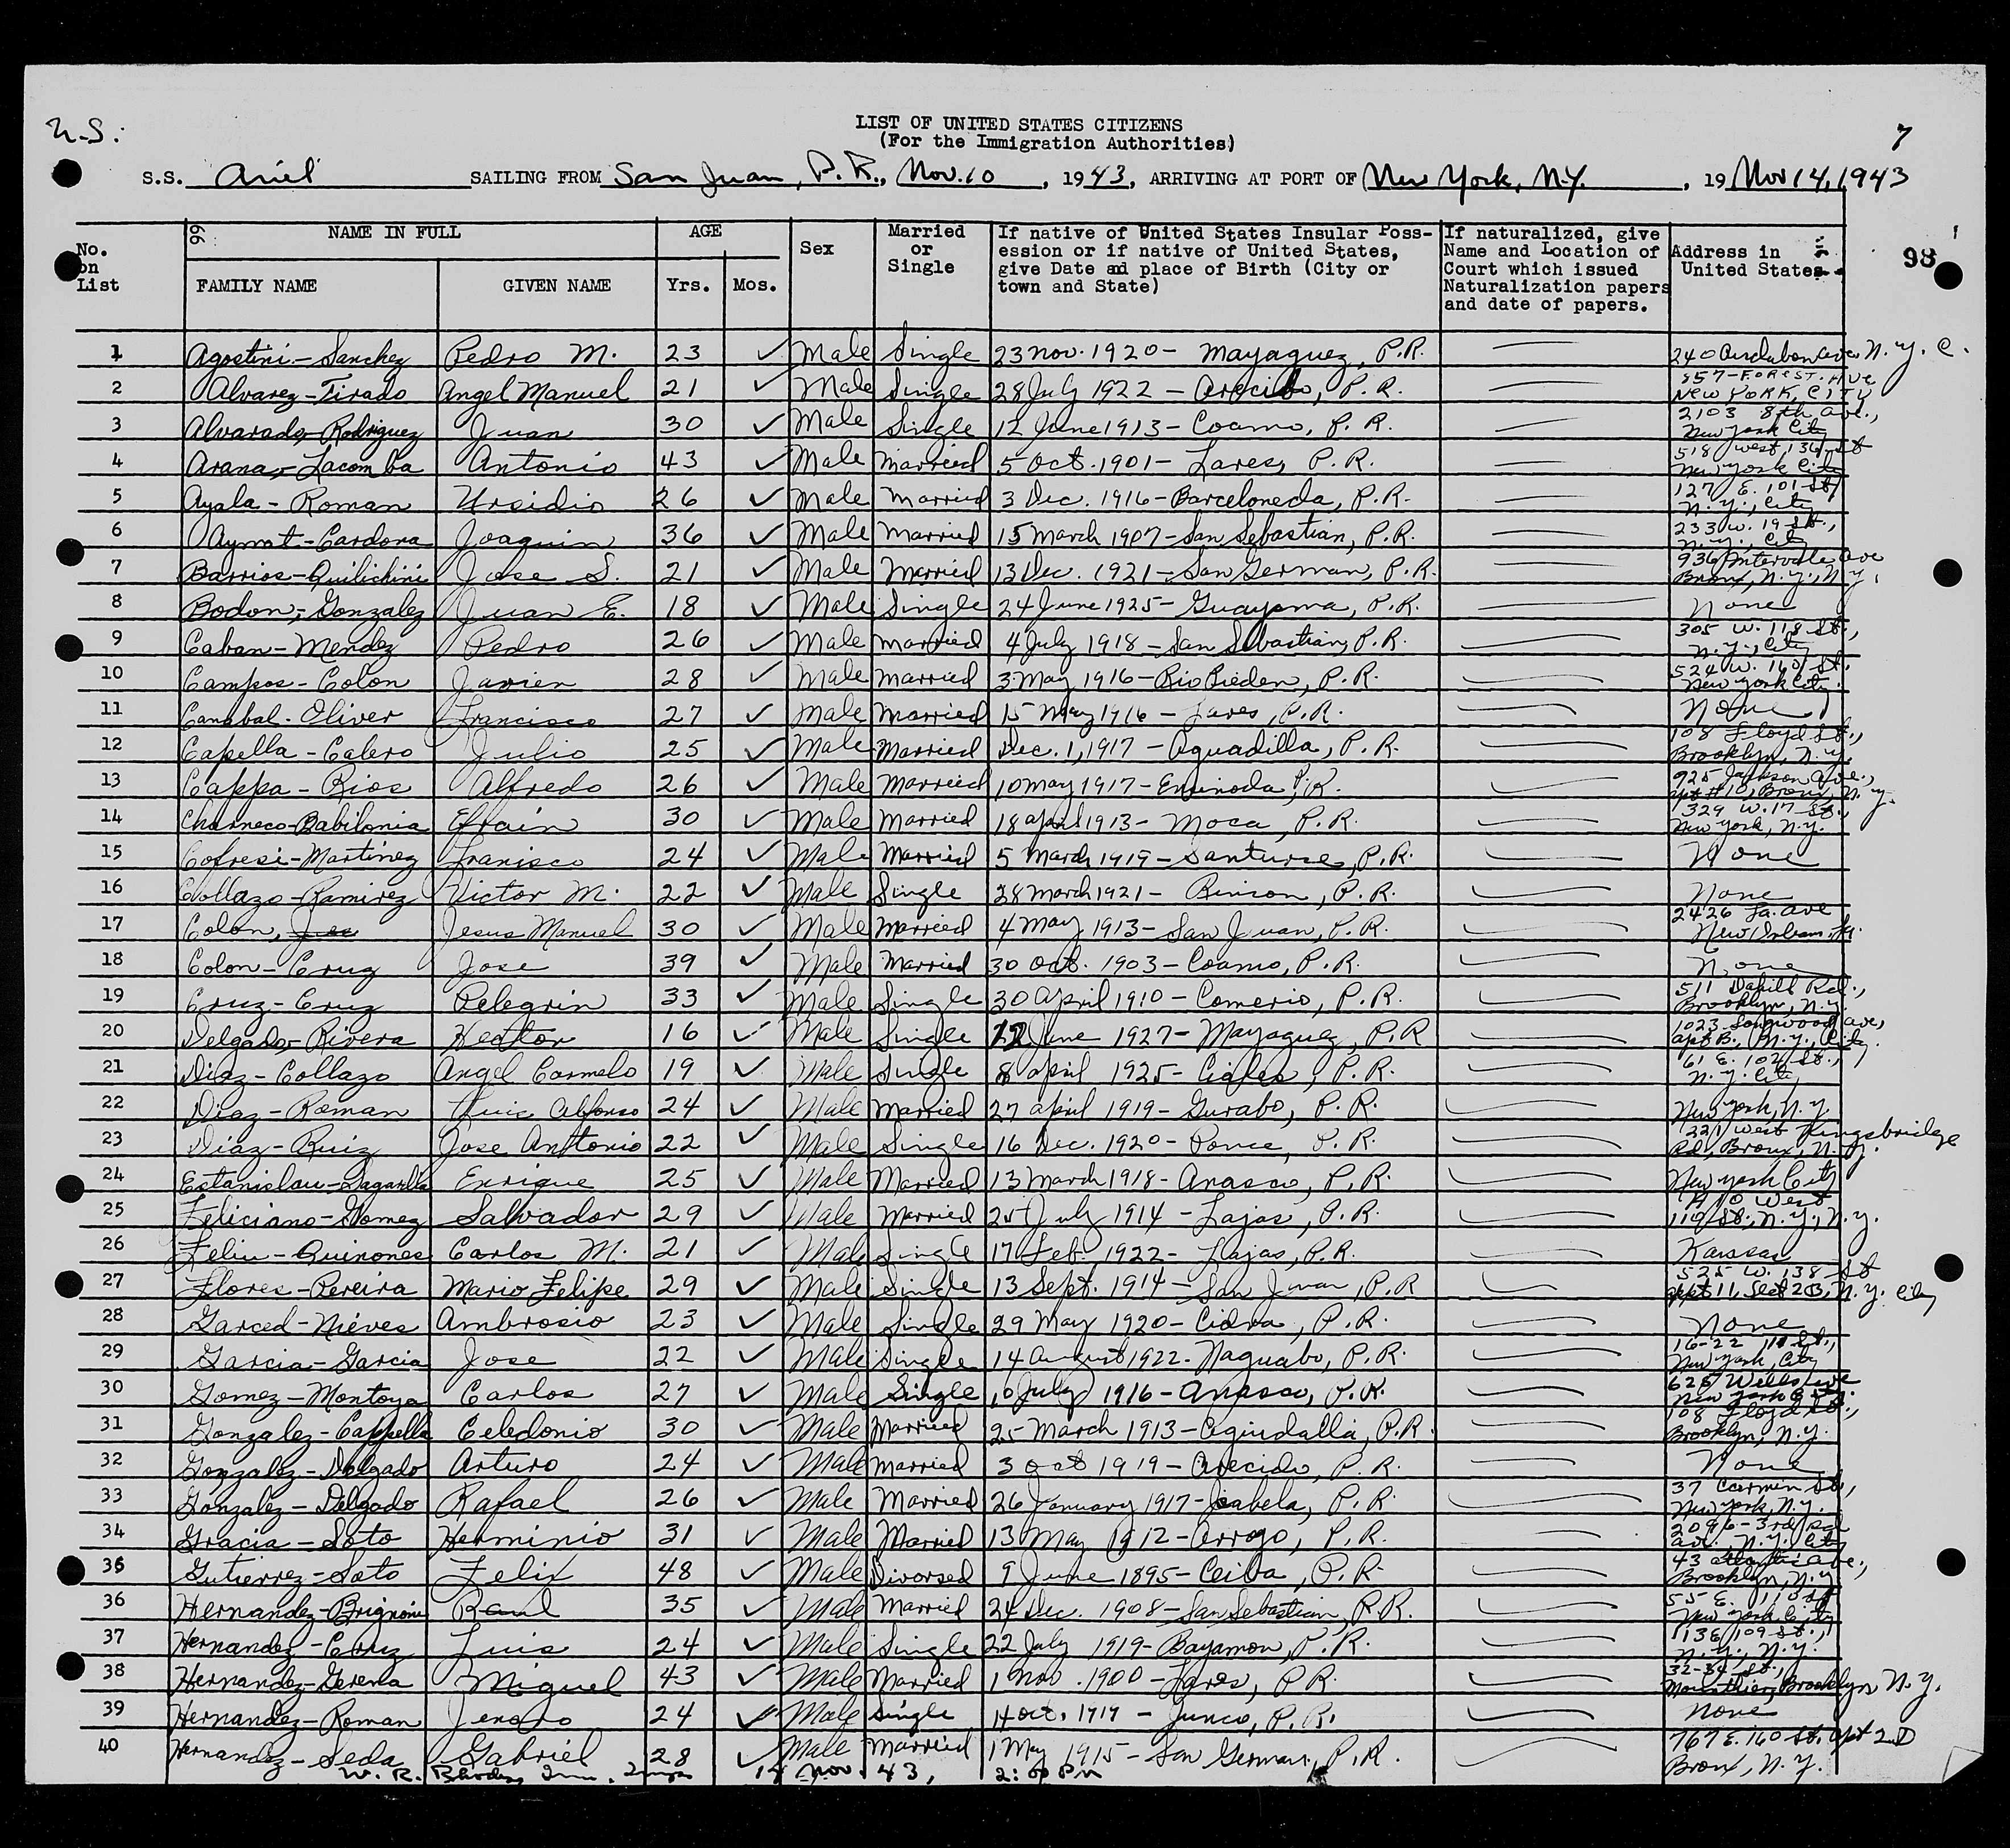 U.S.
LIST OF UNITED STATES CITIZENS
(For the Immigration Authorities)
7
S.S. Ariel SAILING FROM San Juan, P.R., Nov. 10, 1943, ARRIVING AT PORT OF New York, N.Y., 19 Nov 14, 1943
99
98
No. on List
NAME IN FULL
FAMILY NAME
GIVEN NAME
AGE
Yrs. Mos.
Sex
Married or Single
If native of United States Insular Possession or if native of United States, give Date and place of Birth (City or town and State)
If naturalized, give Name and Location of Court which issued Naturalization papers and date of papers.
Address in United States
1 Agostini-Sanchez Pedro M. 23 ✓ Male Single 23 Nov. 1920 - Mayaguez, P.R. — 240 Audubon Ave N.Y.C.
2 Alvarez-Tirado Angel Manuel 21 ✓ Male Single 28 July 1922 - Arecibo, P.R. — 857-Forest. Ave New York, City
3 Alvarado-Rodriguez Juan 30 ✓ Male Single 12 June 1913 - Coamo, P.R. — 2103 8th Ave., New York City
4 Arana-Lacomba Antonio 43 ✓ Male Married 5 Oct. 1901 - Lares, P.R. — 518 West 136 St New York City
5 Ayala-Roman Ursidio 26 ✓ Male Married 3 Dec. 1916 - Barceloneda, P.R. — 127 E. 101 St, N.Y., City
6 Aymat-Cardona Joaquin 36 ✓ Male Married 15 March 1907 - San Sebastian, P.R. — 233 W. 19 St., N.Y., City
7 Barrios-Quilichini Jose S. 21 ✓ Male Married 13 Dec. 1921 - San German, P.R. — 936 Intervale Ave Bronx, N.Y., N.Y.
8 Bodon-Gonzalez Juan E. 18 ✓ Male Single 24 June 1925 - Guayama, P.R. — None
9 Caban-Mendez Pedro 26 ✓ Male Married 4 July 1918 - San Sebastian, P.R. — 305 W. 118 St., N.Y., City
10 Campos-Colon Javier 28 ✓ Male Married 3 May 1916 - Rio Pieden, P.R. — 524 W. 160 St. New York City.
11 Canabal-Oliver Francisco 27 ✓ Male Married 15 May 1916 - Lares, P.R. — None
12 Capella-Calero Julio 25 ✓ Male Married Dec. 1, 1917 - Aguadilla, P.R. — 108 Floyd St., Brooklyn, N.Y.
13 Cappa-Rios Alfredo 26 ✓ Male Married 10 May 1917 - Eninoda, P.R. — 925 Jackson Ave., apt #10, Bronx, N.Y.
14 Charneco-Babilonia Efrain 30 ✓ Male Married 18 April 1913 - Moca, P.R. — 329 W. 17 St., New York, N.Y.
15 Cofresi-Martinez Franisco 24 ✓ Male Married 5 March 1919 - Santurse, P.R. — None
16 Collazo-Ramirez Victor M. 22 ✓ Male Single 28 March 1921 - Rincon, P.R. — None
17 Colon, Jesus Manuel 30 ✓ Male Married 4 May 1913 - San Juan, P.R. — 2426 La. Ave New Orleans, La.
18 Colon-Cruz Jose 39 ✓ Male Married 30 Oct. 1903 - Coamo, P.R. — None
19 Cruz-Cruz Pelegrin 33 ✓ Male Single 30 April 1910 - Comerio, P.R. — 511 Dahill Rd., Brooklyn, N.Y.
20 Delgado-Rivera Hector 16 ✓ Male Single 12 June 1927 - Mayaguez, P.R — 1023 Longwood Ave, apt B., N.Y., City.
21 Diaz-Collazo Angel Carmelo 19 ✓ Male Single 8 April 1925 - Ciales, P.R. — 61 E. 102 St., N.Y. City
22 Diaz-Roman Luis Alfonso 24 ✓ Male Married 27 April 1919 - Gurabo, P.R. — New York, N.Y.
23 Diaz-Ruiz Jose Anttonio 22 ✓ Male Single 16 Dec. 1920 - Ponce, P.R. — 221 West Kingsbridge Rd, Bronx, N.Y.
24 Estanislau- Enrique 25 ✓ Male Married 13 March 1918 - Anasco, P.R. — New York City
25 Feliciano-Gomez Salvador 29 ✓ Male Married 25 July 1914 - Lajas, P.R. — West 119 St., N.Y., N.Y.
26 Feliu-Quinones Carlos M. 21 ✓ Male Single 17 Feb. 1922 - Lajas, P.R. — Kansas
27 Flores-Pereira Mario Felipe 29 ✓ Male Single 13 Sept. 1914 - San Juan, P.R — 525 W. 138 St apt 11, Sect 2B, N.Y. City
28 Garced-Nieves Ambrosio 23 ✓ Male Single 29 May 1920 - Cidra, P.R. — None
29 Garcia-Garcia Jose 22 ✓ Male Single 14 August 1922 - Naguabo, P.R. — 16-22 111 St., New York, City
30 Gomez-Montoya Carlos 27 ✓ Male Single 10 July 1916 - Anasco, P.R. — 625 Wells Ave New York City.
31 Gonzalez-Cappella Celedonio 30 ✓ Male Married 25 March 1913 - Aguidalla, P.R. — 108 Floyd St., Brooklyn, N.Y.
32 Gonzalez-Delgado Arturo 24 ✓ Male Married 3 Oct 1919 - Arecido, P.R. — None
33 Gonzalez-Delgado Rafael 26 ✓ Male Married 26 January 1917 - Isabela, P.R. — 37 Carmin St., New York, N.Y.
34 Gracia-Soto Herminio 31 ✓ Male Married 13 May 1912 - Arroyo, P.R. — 2096-3rd Ave., N.Y. City
35 Gutierrez-Soto Felix 48 ✓ Male Divorsed 9 June 1895 - Ceiba, P.R. — 43 Atlantic Ave., Brooklyn, N.Y.
36 Hernandez-Brignoni Raul 35 ✓ Male Married 24 Dec. 1908 - San Sebastian, P.R. — 55 E. 110 St New York City
37 Hernandez-Cruz Luis 24 ✓ Male Single 22 July 1919 - Bayamon, P.R. — 113 E 109 St., N.Y., N.Y.
38 Hernandez-Gerena Miguel 43 ✓ Male Married 1 Nov. 1900 - Lares, P.R. — 32-34 St., Brooklyn N.Y.
39 Hernandez-Roman Jenaro 24 ✓ Male Single 14 Oct. 1919 - Junco, P.R. — None
40 Hernandez-Seda Gabriel 28 ✓ Male Married 1 May 1915 - San German, P.R. — 767 E. 160 St, Apt 2D Bronx, N.Y.
W. R. Rhodes, Imm. 14 Nov. 43, 2:00 PM